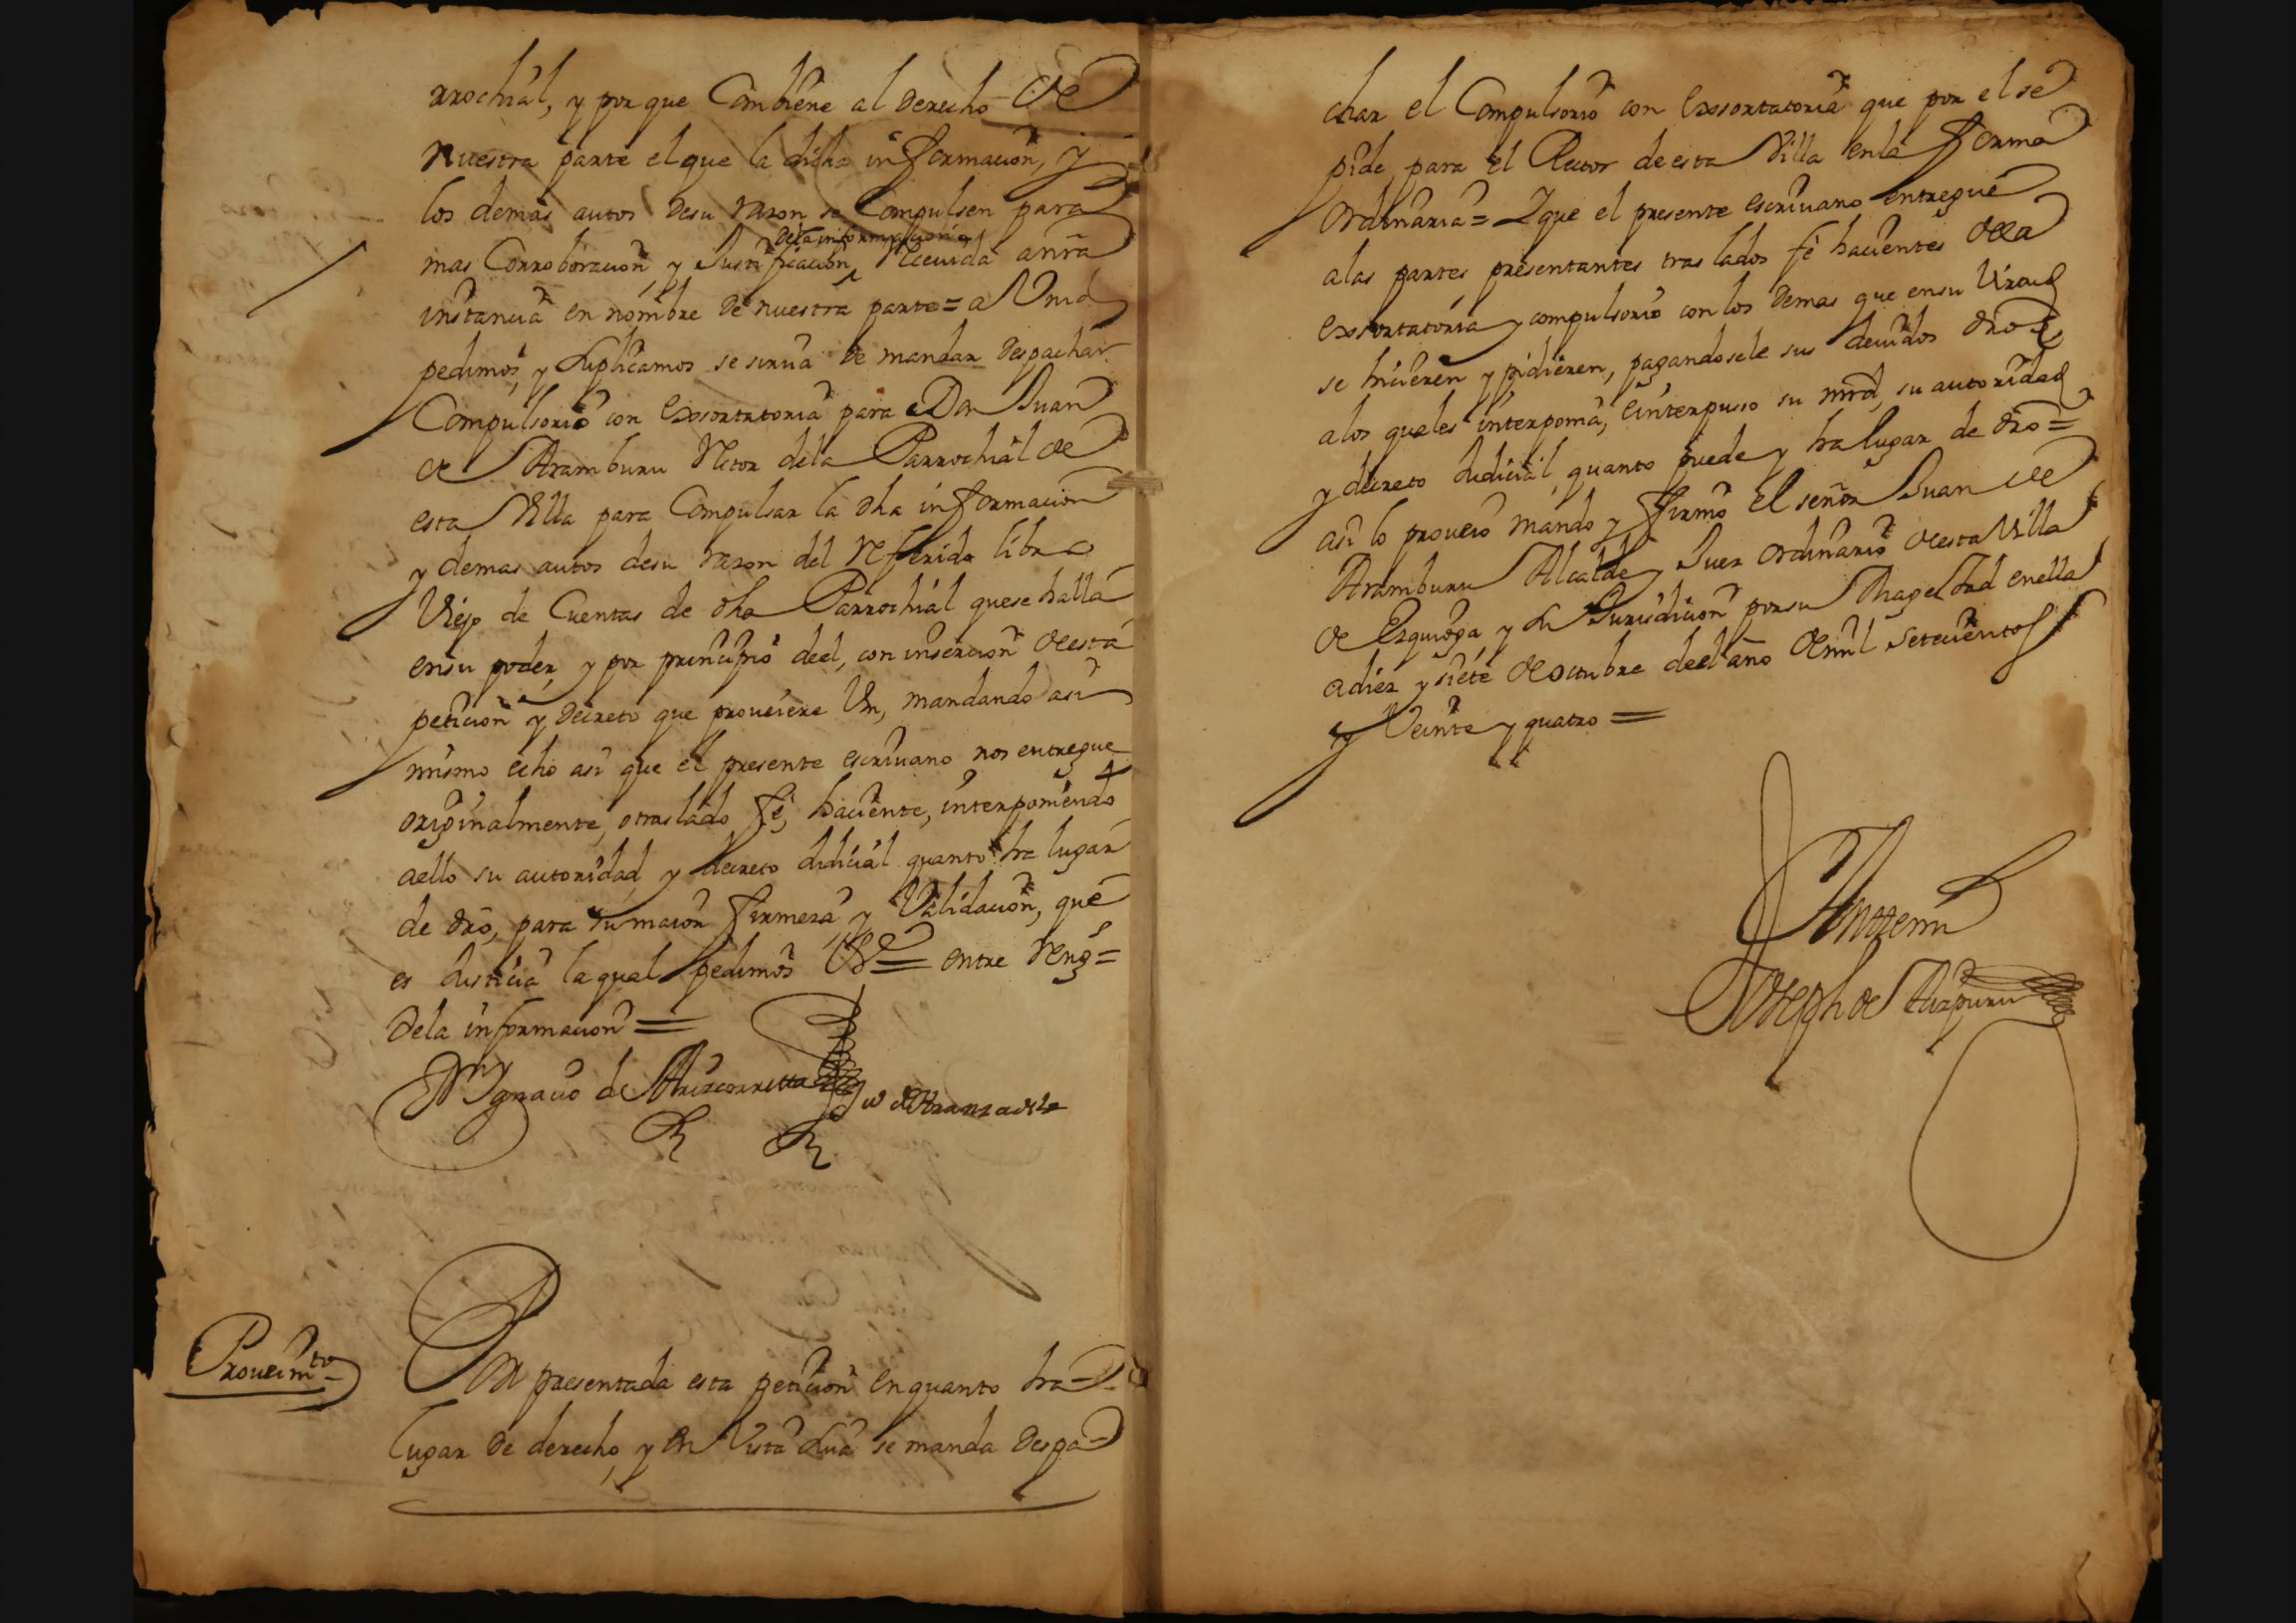 rrochial, y por que Combiene al derecho de
nuestra parte el que la dicha informacion, y
los demas autos desu razon se Compulsen para
dela informacion
mas Corroboracion, y Justificacion Recivida anrã
instancia en nombre de nuestra parte = a Vmd
pedimos, y Suplicamos se sirva de mandar despachar
Compulsorio con Exsortatoria para Don Juan
de Aramburu Retor dela Parrochial de
esta Villa para Compulsar la dha informacion
y demas autos desu razon del referido libro
Viejo de Cuentas de dha Parrochial quese halla
ensu poder, y por principio deel, con insercion desta
peticion y decreto que proveiere Vm, mandando asi
mismo echo asi que el presente escrivano nos entregue
originalmente, o traslado feé, haciente, interponiendo
aello su autoridad, y decreto Judicial quanto ha lugar
de dro, para sumaior firmeza, y Validacion, que
es Justicia la qual pedimos = entre reng =
dela informacion =
Ygnacio de Arizcorreta
Proveimto
Por presentada esta peticion enquanto ha
lugar de derecho, y en Vista Sua se manda despa-
char el Compulsorio con Exsortatoria que por el se
pide para el Retor de esta Villa enla forma
Ordinaria = Y que el presente escrivano entregue
alas partes presentantes traslados fé hacientes dela
Exsortatoria y compulsorio con los demas que ensu Virtud
se hicieren y pidieren, pagandosele sus devidos dros
alos quales interponia, e interpuso su mrd, su autoridad
y decreto Judicial, quanto puede y ha lugar de dro =
asi lo proveio mando y firmo el señor Juan de
Aramburu Alcalde y Juez ordinario desta Villa
de Ezquioga, y Su Jurisdicion por su Magestad enella
a diez y siete de octubre deel año de mil setecientos
y Veinte y quatro =
Antemi
Joseph de Aizpuru